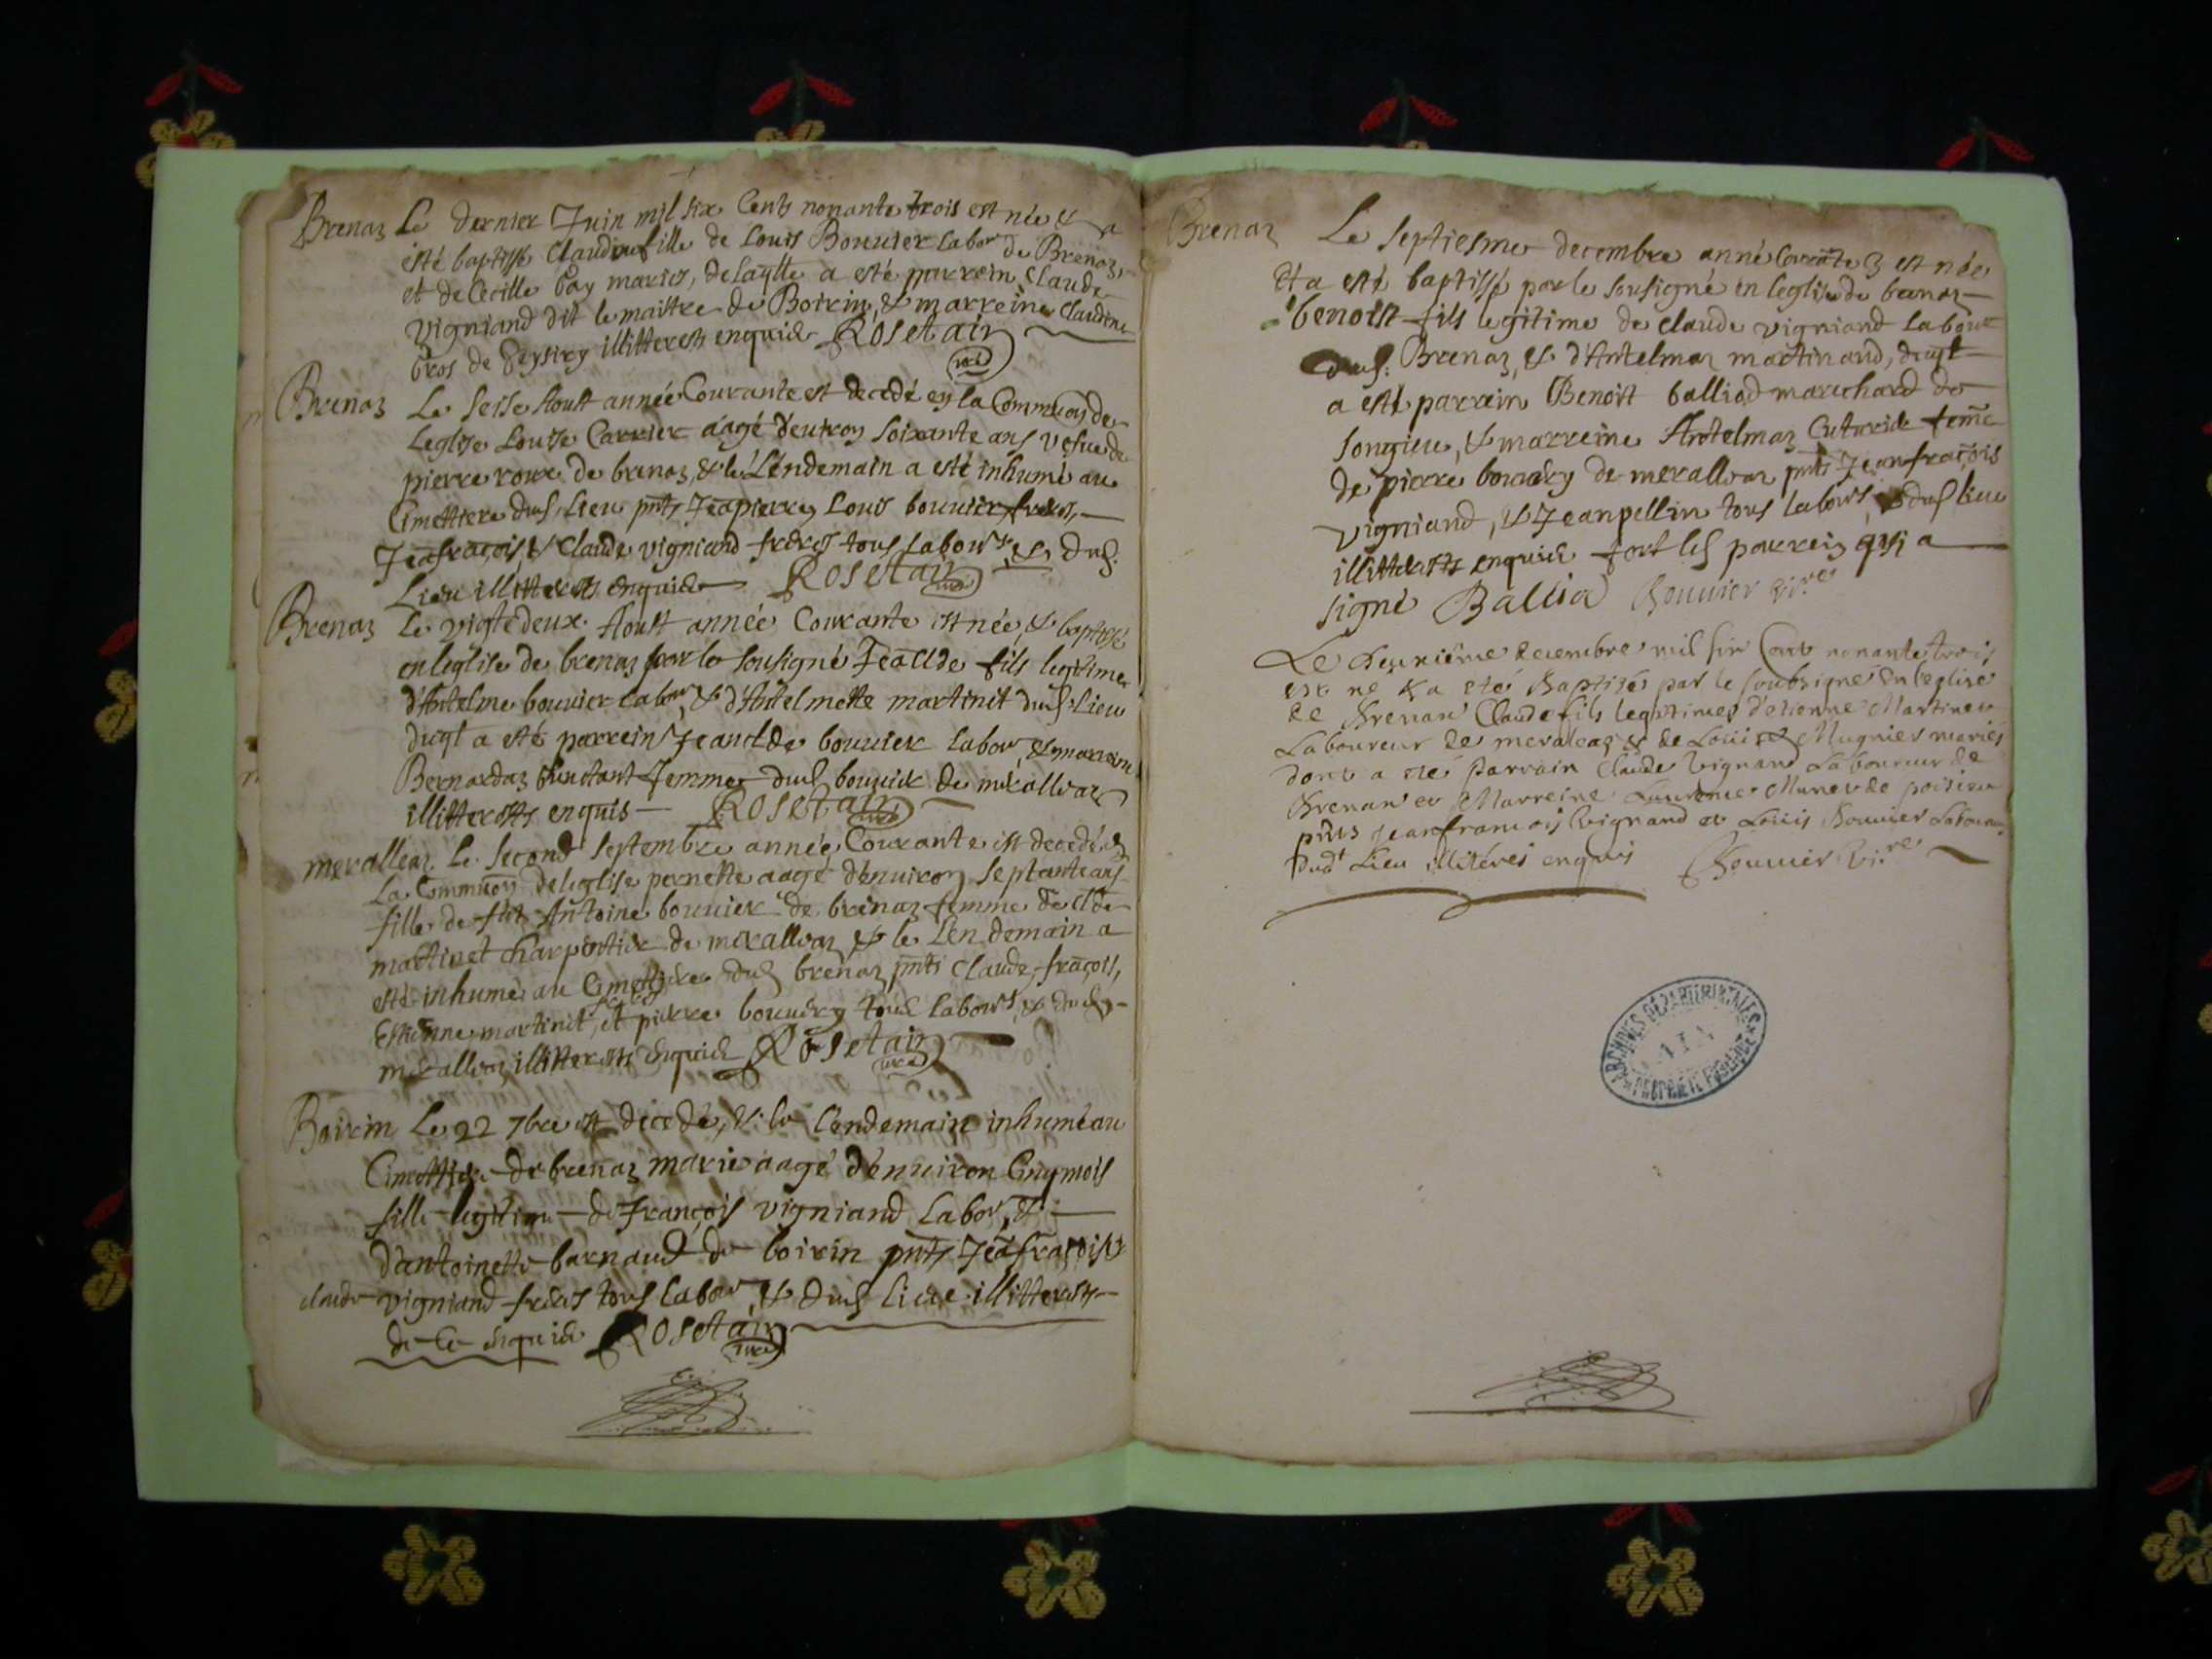 Brenaz Le dernier Juin mil six Cents nonante trois est née & a
esté baptissé Claudine fille de Louis Bouuier Labor de Brenaz,
et de Cecille Gay mariés, de laqlle a esté parrein Claude
Vigniand dit le maistre de Boirin, & marreine Claudine
Gros de illitterests enquids Rosetain
curé
Brenaz Le seise Aoust année Courante est decedé en la Commuon de
Leglise Louise Carrier aagé d'enuiron soixante ans vefue de
pierre roux de brenaz, & le Lendemain a esté inhumé au
Cimettiere duds Lieu pnts Jeapierre, Louis bouuier freres,
Jeafraçois, & Claude vigniand freres tous Labours, & duds
Lieu illitterests enquids Rosetain
curé
Brenaz Le vigtedeux Aoust année Courante est née, & baptissé
en leglise de brenaz par le sousigné Jeaclde fils legitime
d'Antelme bouuier Labor, & d'Antelmette martinet duds Lieu
duql a esté parrein Jeanclde bouuier labor, & marreine
Bernardaz femme duds bouuier de merallaz
illitterests enquis Rosetain
curé
meralleaz Le second septembre année Courante est decedé en
La Commuon de leglise pernette aagé d'enuiron septante ans
fille de fut Antoine bouuier de brenaz femme de Clde
martinet charpentier de merallaz, & le Lendemain a
esté inhumé au Cimettiere duds brenaz pnts Claude, fraçois,
Estienne martinet, et pierre bouuery tous labours, & duds
merallaz illitterests enquids Rosetain
curé
Boirin Le 22 7bre est decedé, & le Lendemain inhumé au
Cimettiere de brenaz marie aagé d'enuiron Cinq mois
fille legitime de François vigniand Labor, &
d'antoinette barnaud de boirin pnts Jeafraçois &
claude vigniand freres tous labor, & duds lieu illitterests
de ce enquids Rosetain
curé
Brenaz Le septiesme decembre année Courante 3 est née
Et a esté baptissé par le sousigné en leglise de brenaz
benoist fils legitime de Claude vigniand labour
duds Brenaz, & d'Antelmaz martinand, duql
a esté parrein Benoist balliod marechard de
songieu, & marreine Antelmaz femè
de pierre bouuery de merallaz pnts Jeanfraçois
vigniand, & Jeanpellin tous labours, duds lieu
illitterests enquids fort les parrein qui a
signé Ballia Bouuier vire
Le decembre mil six Cent nonante trois
est né & a eté Baptisé par le soubsigné En leglise
de Brenan Claude fils legitimes d'etienne Martinet
Laboureur de meraleaz & de Louise Mugnier mariés
dont a eté Parrain Claude Vignand Laboureur de
Brenan et Marreine Laurence Munet de
pnts Jeanfrancois Vignand et Loüis Bouuier Laboureurs
dudt Lieu illiterés enquis Bouuier Vi.re
ARCHIVES DÉPARTEMENTALES
AIN
PROPRIÉTÉ PUBLIQUE